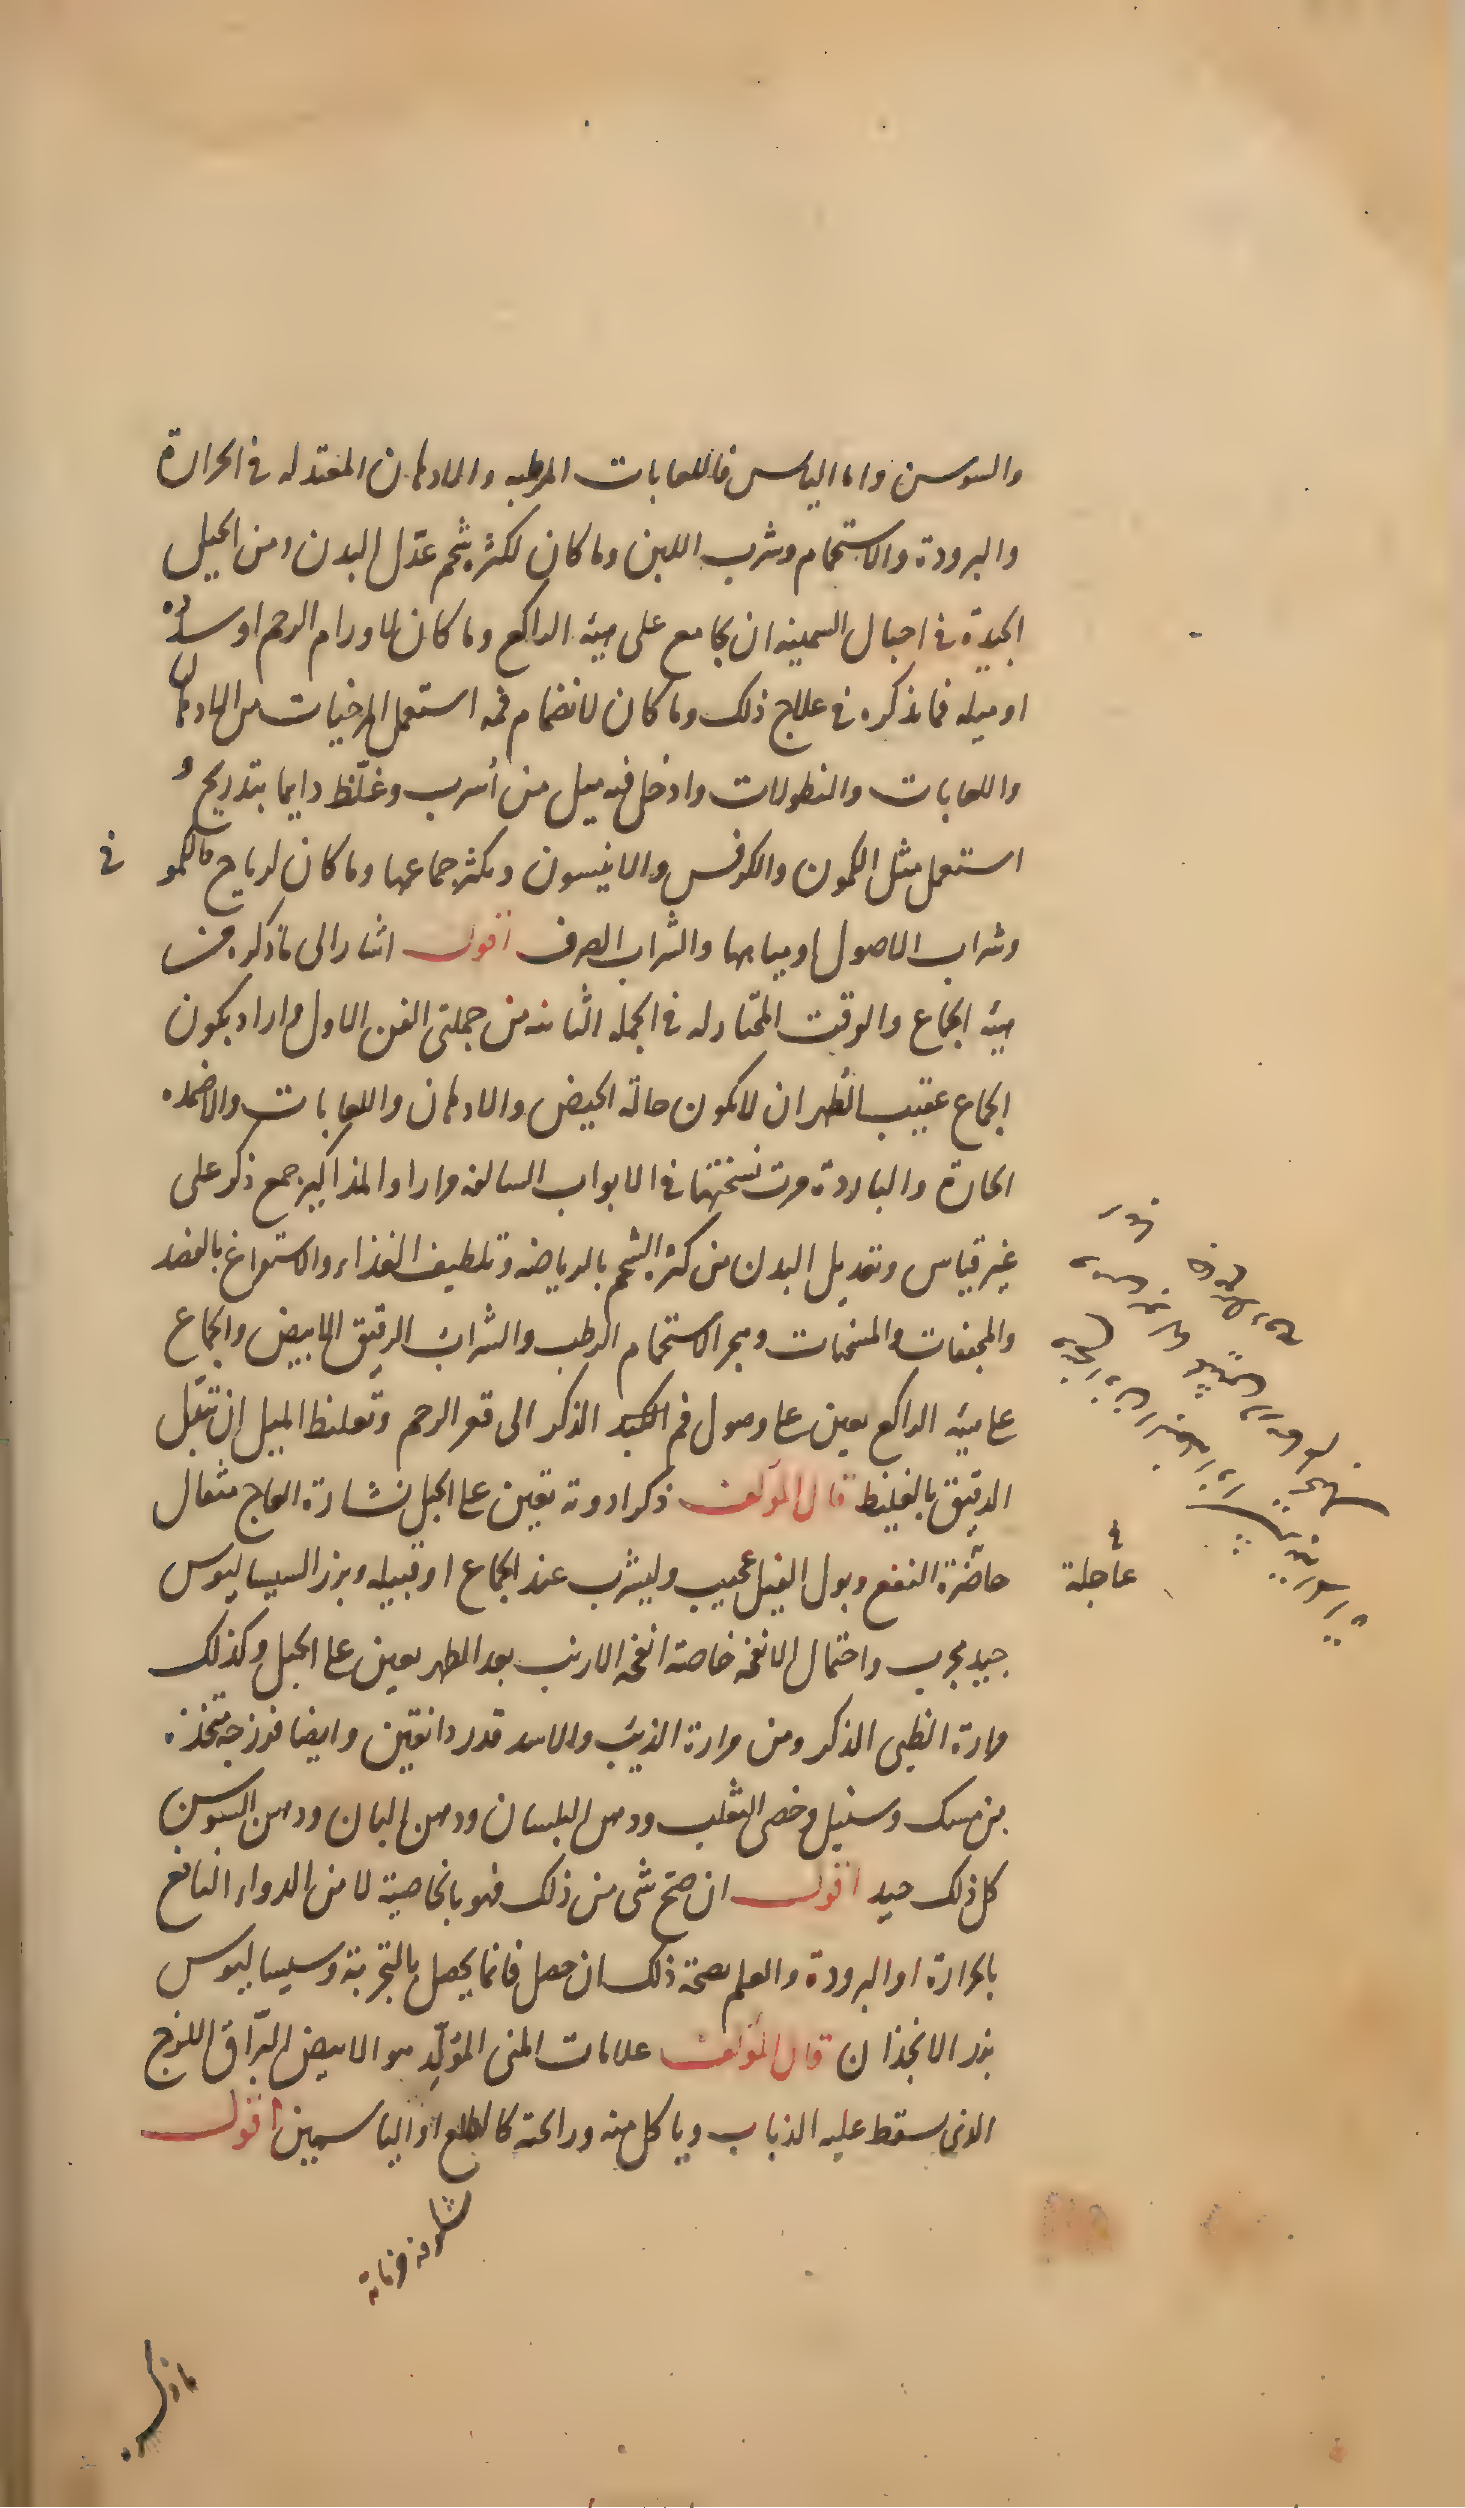 والسوسن واما اليابس فاللعابات المرطبه والادهان المعتدله فى الحرارة
والبرودة والاستحمام وشرب اللبن وما كان لكثرة شحم عدّل البدن ومن الحيل
الجيدة فى احبال السمينه ان يجامع على هيئة الراكع وما كان لاورام الرحم او سدده
او ميله فما نذكره فى علاج ذلك وما كان لانضمام فمه استعمل المرخيات من الادهان
واللعابات والنطولات وادخل فيه ميل من أسرب وغلّظ دايما بتدريج و
استعمل مثل الكمون والكرفس والانيسون ويكثر جماعها وما كان لرياح فالكمو نى
وشراب الاصول او مياهها والشراب الصرف اقول اشار الى ما ذكره من
هيئة الجماع والوقت المختار له فى الجمله الثانيه من جملتى الفن الاول واراد بكون
الجماع عقيب الطهر ان لا يكون حالة الحيض والادهان واللعابات والاضمده
الحارة والباردة مرت نسختها فى الابواب السالفه مرارا والمذاكير جمع ذكر على
غير قياس وتعديل البدن من كثرة الشحم بالرياضه وتلطيف الغذاء والاستفراغ بالفصد
والمجففات والمسخنات وهجر الاستحمام الرطب والشراب الرقيق الابيض والجماع
على هيئة الراكع يعين على وصول فم الذكر الى قعر الرحم وتغليظ الميل ان تبدّل
الدقيق بالغليظ قال المؤلف ذكر ادوية تعين على الحبل نشارة العاج مثقال
حاضرة النفع وبول الفيل عجيب وليشرب عند الجماع او قبيله وبزر السيساليوس
عاجلة
جيد مجرب واحتمال الانفحه خاصة انفحه الارنب بعد الطهر يعين على الحبل وكذلك
مرارة الظبى الذكر ومن مرارة الذيب والاسد قدر دانقين وايضا فرزجه متخذه
من مسك وسنبل وخصى الثعلب ودهن البلسان ودهن البان ودهن السوسن
كل ذلك جيد اقول ان صح شى من ذلك فهو بالخاصية لا من الدواء النافع
بالحرارة او البرودة والعلم بصحة ذلك ان حصل فانما يحصل بالتجربة وسيساليوس
بزر الانجذان قال المؤلف علامات المنى المؤلّد هو الابيض البرّاق اللزج
الذى يسقط عليه الذباب وياكل منه ورائحة كالطلع او الياسمين اقول